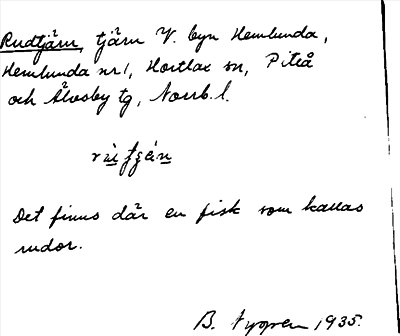 Rudtjärn, tjärn V. byn Hemlunda,
Hemlunda nr 1, Hortlax sn, Piteå
och Älvsby tg, Norrb. l.
Det finns där en fisk som kallas
rudor.
B. 1935.